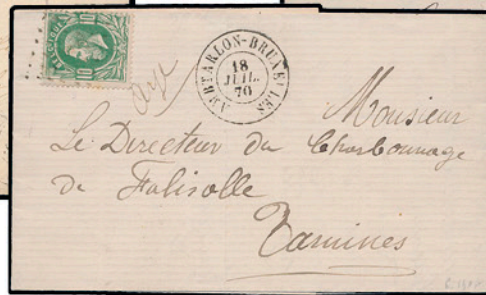 BELGIQUE
10 10
AMB! ARLON-BRUXELLES
18
JUIL.
70
Aye
Monsieur
Le Directeur du Charbonnage
de Falisolle
Tamines